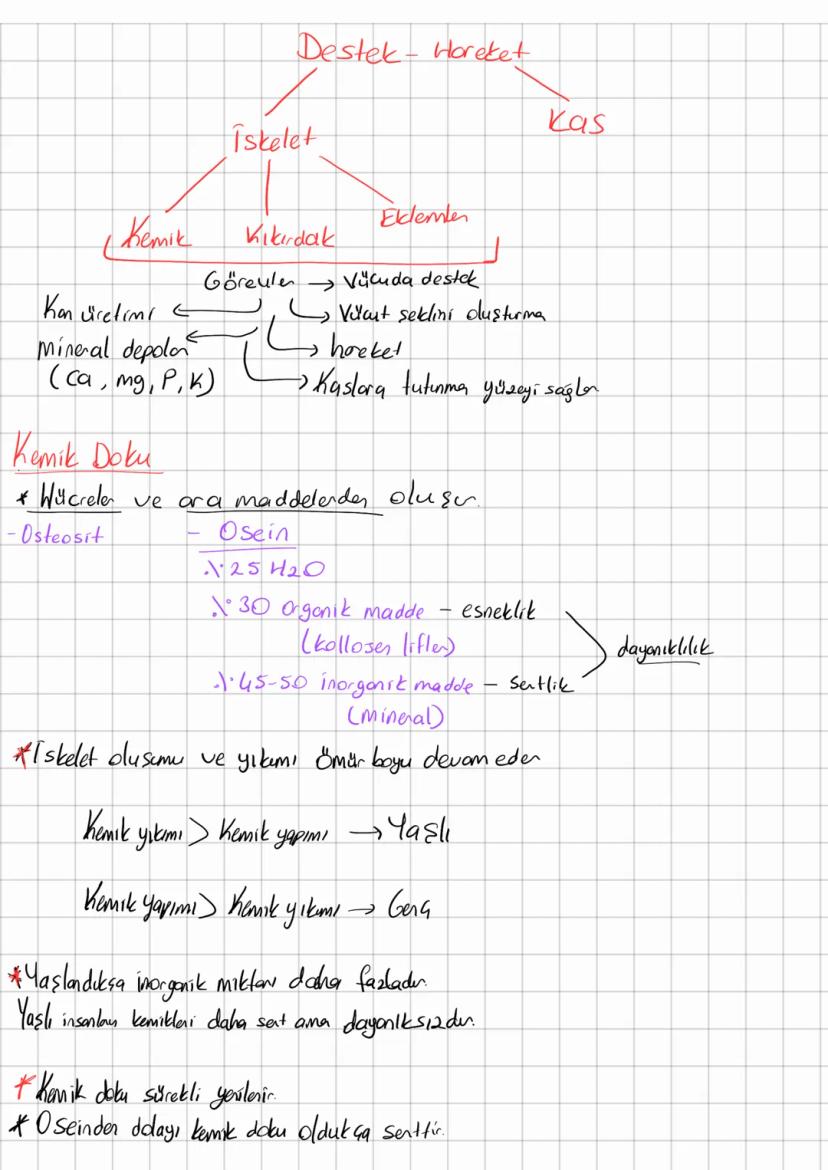 Destek - Hareket
İskelet
Kas
Kemik Kıkırdak Eklemler
Görevler → Vücuda destek
Kan üretimi ← → Vücut seklini oluşturma
mineral depolar ← → hareket
(Ca, mg, P, K) → Kaslara tutunma yüzeyi sağlar
Kemik Doku
* Hücreler ve ara maddelerden oluşur.
- Osteosit - Osein
%25 H2O
%30 organik madde - esneklik
(kollosen lifler) dayanıklılık
%45-50 inorganik madde - Sertlik
(mineral)
* İskelet olusumu ve yıkımı ömür boyu devam eder
Kemik yıkımı > Kemik yapımı → Yaşlı
Kemik Yapımı > Kemik yıkımı → Genç
* Yaşlandıkça inorganik miktarı daha fazladır.
Yaşlı insanların kemikleri daha sert ama dayanıksızdır.
* Kemik doku sürekli yenilenir.
* Oseinden dolayı kemik doku oldukça serttir.